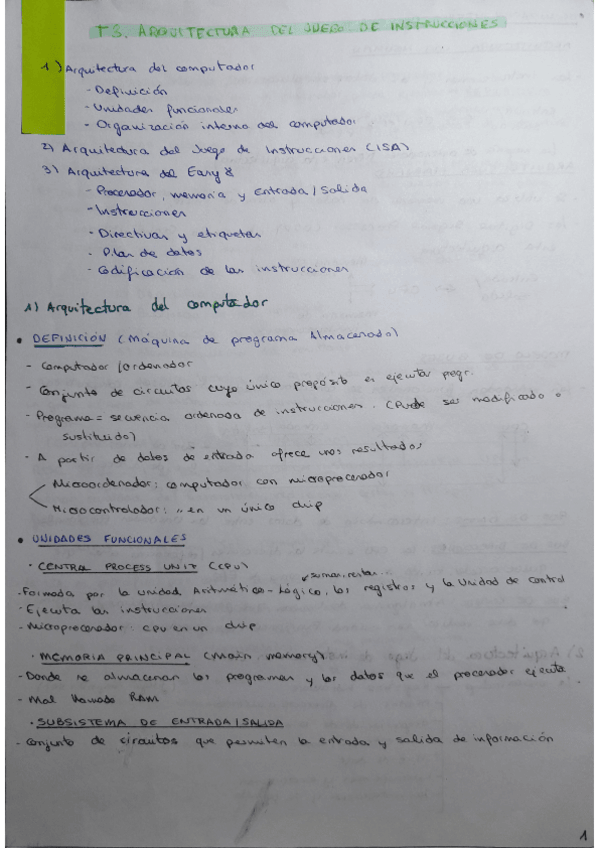 T3. ARQUITECTURA DEL JUEGO DE INSTRUCCIONES
1) Arquitectura del computador
- Definición
- Unidades funcionales
- Organización interna del computador
2) Arquitectura del Juego de Instrucciones (ISA)
3) Arquitectura del Easy8
- Procesador, memoria y Entrada/Salida
- Instrucciones
- Directivas y etiquetas
- Pilas de datos
- Codificación de las instrucciones
1) Arquitectura del computador
• DEFINICIÓN (Máquina de programa Almacenado)
- Computador/ordenador
- Conjunto de circuitos cuyo único propósito es ejecutar progr.
- Programa = secuencia ordenada de instrucciones. (Puede ser modificado o
sustituido)
- A partir de datos de entrada ofrece unos resultados
Microordenador: computador con microprocesador
Microcontrolador: " en un único chip
• UNIDADES FUNCIONALES
· CENTRAL PROCESS UNIT (CPU)
sumar, restar..
- Formada por la unidad Aritmético-Lógico, los registros y la Unidad de control
- Ejecuta las instrucciones
- Microprocesador: CPU en un chip
· MEMORIA PRINCIPAL (Main memory)
- Donde se almacenan los programas y los datos que el procesador ejecuta
- Mal llamado RAM
· SUBSISTEMA DE ENTRADA/SALIDA
- Conjunto de circuitos que permiten la entrada y salida de información
1